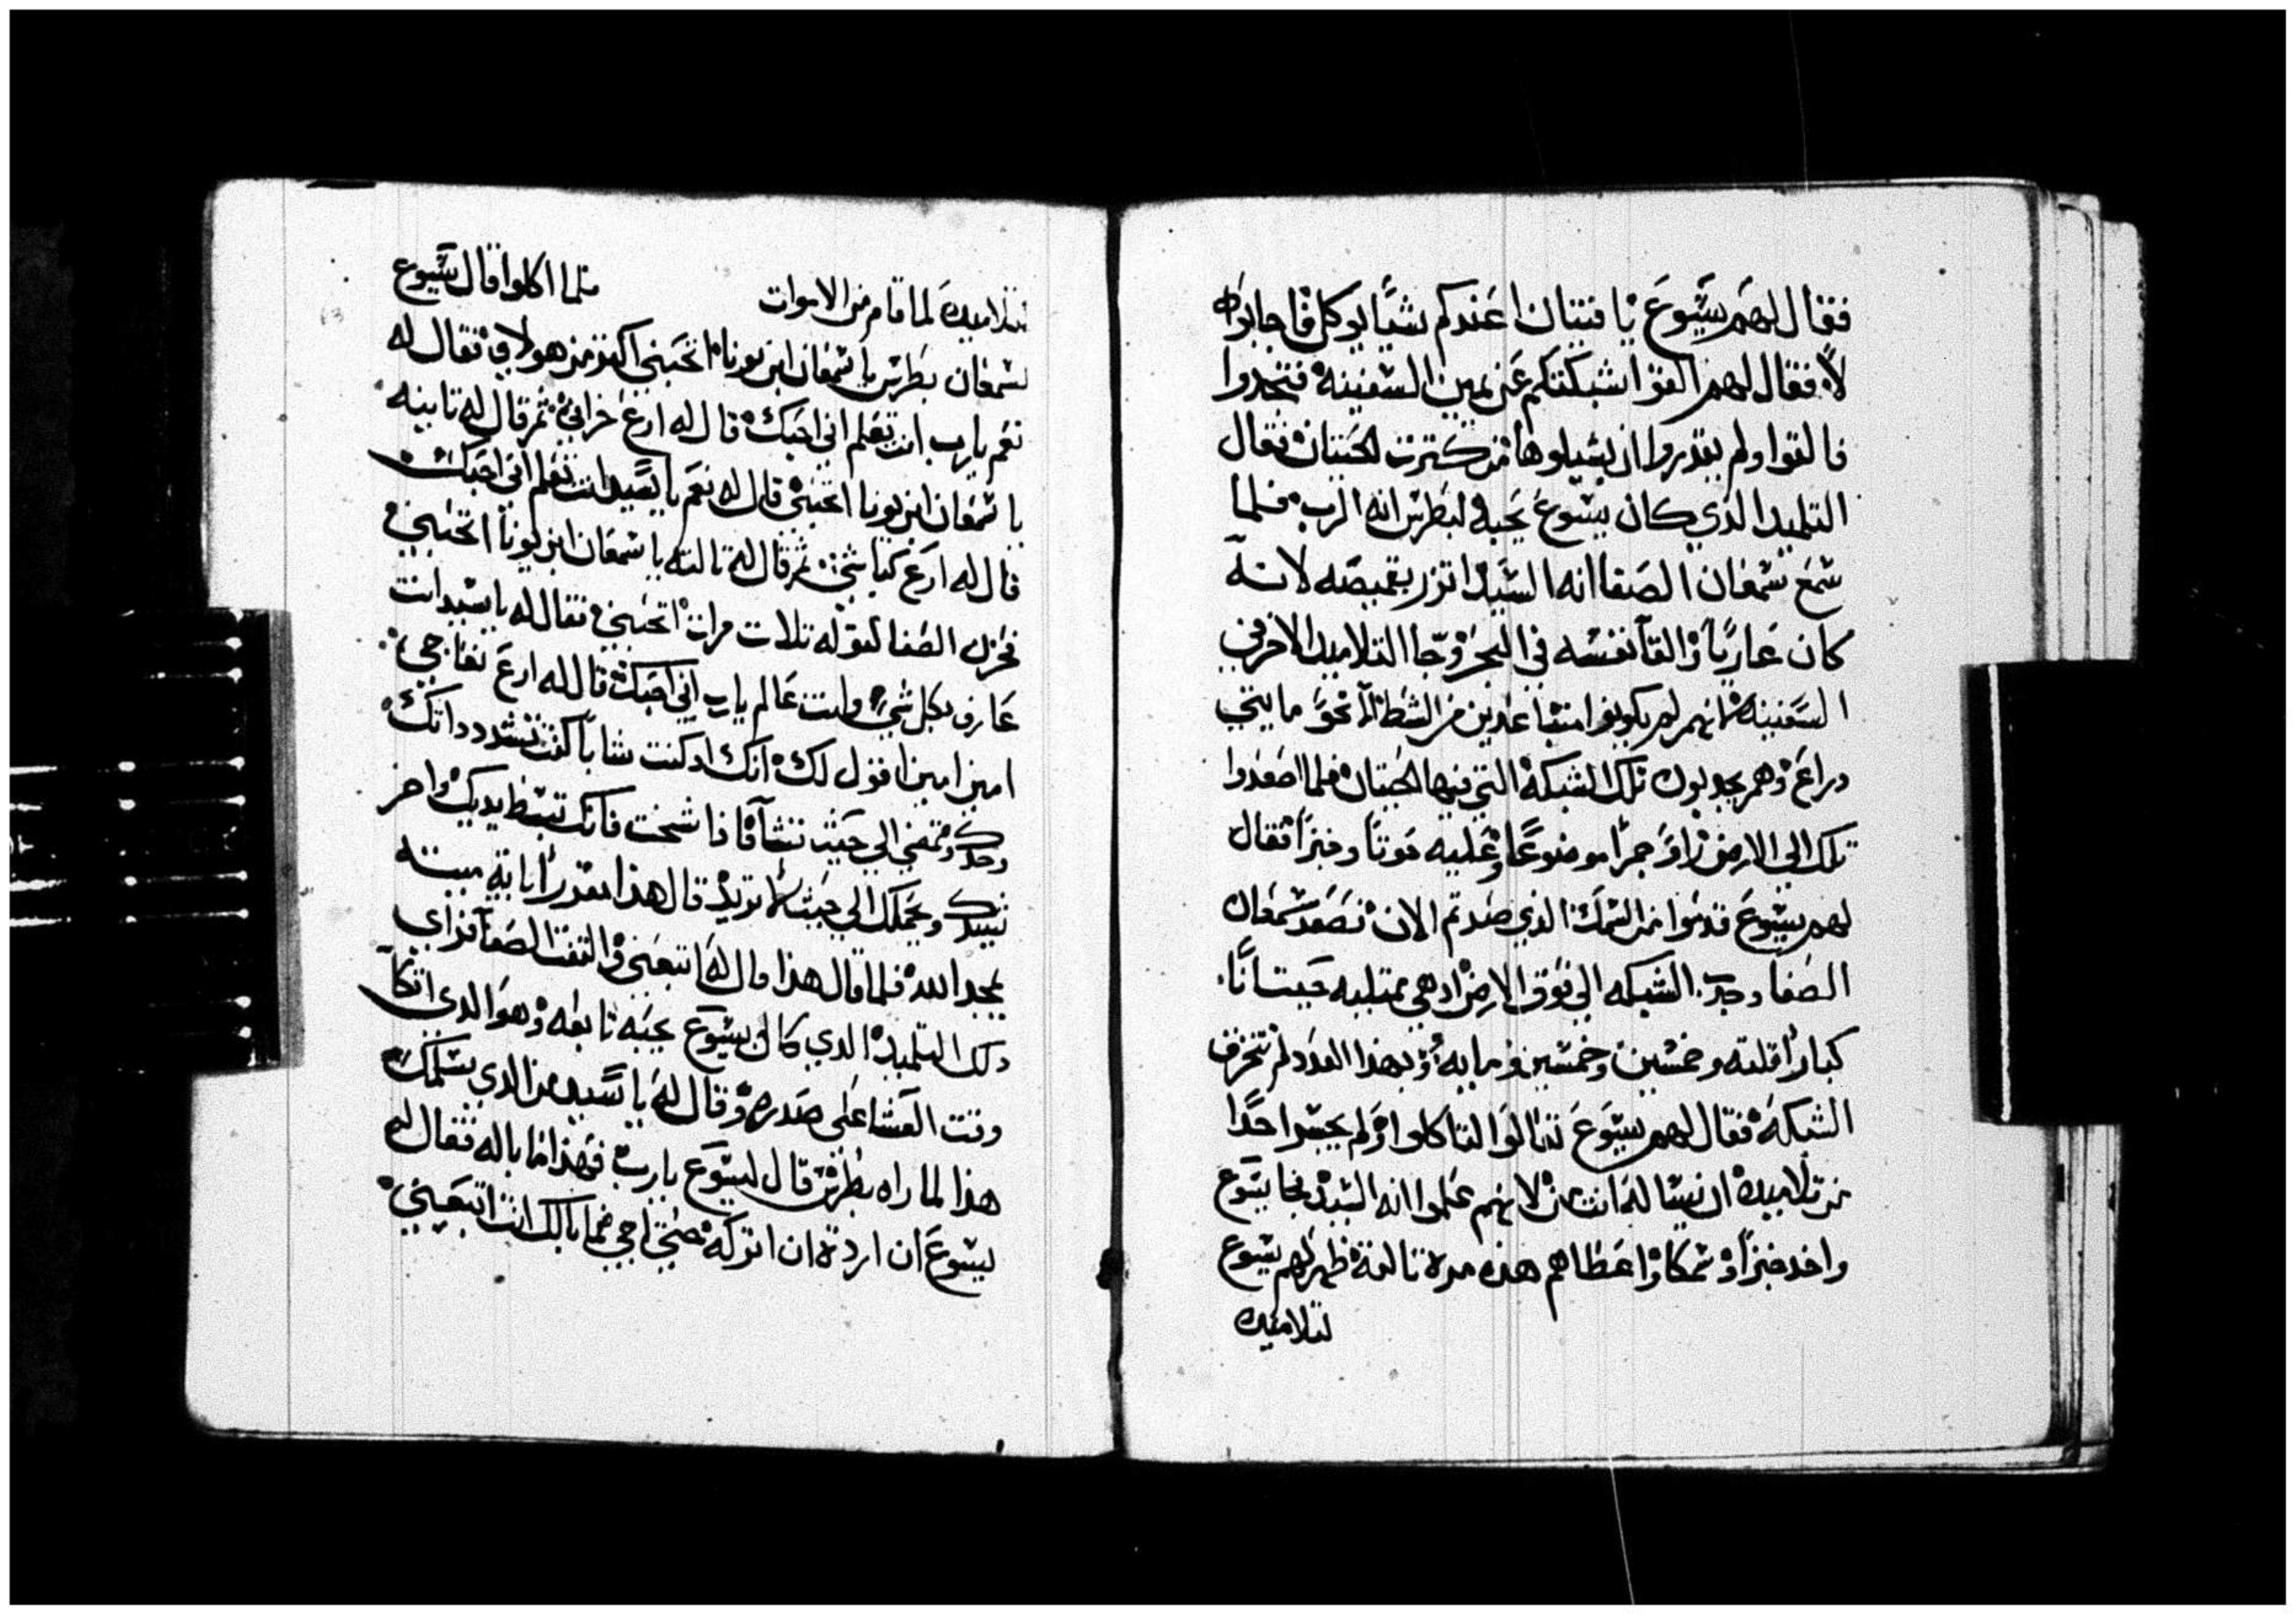 فقال لهم يسوع يا فتيان اعندكم شيا يوكل فاجابوه
لا فقال لهم القوا شبكتكم عن يمين السفينه فتجدوا
فالقوا ولم يقدروا ان يشيلوها من كترت الحيتان فقال
التلميد الدي كان يسوع يحبه لبطرس انه الرب فلما
سمع سمعان الصفا انه السيد اتزر بقميصه لانه
كان عاريا والقا نفسه في البحر وجا التلاميد الاخر في
السفينه لانهم لم يكونوا متباعدين من الشط الا نحو مايتي
دراع وهم يجدبون تلك الشبكة التي فيها الحيتان فلما اصعدوا
تلك الي الارض راو جمرا موضوعا وعليه حوتا وخبزا فقال
لهم يسوع قدموا من السمك الذي صدتم الان فصعد سمعان
الصفا وجر الشبكه الي فوق الارض اد هي ممتليه حيتانا
كبارا تلته وخمسين وخمسين ومايه وبهذا العدد لم تتخرق
الشبكه فقال لهم يسوع تعالوا لتاكلوا ولم يجسر احدا
من تلاميده ان يساله انت من لانهم علموا انه السيد فجا يسوع
واخد خبزا وسمكا واعطاهم هذه مرة تالتة ظهر لهم يسوع
لتلاميده
لتلاميده لما قام من الاموات فلما اكلوا قال يسوع
لسمعان بطرس يا سمعان ابن يونا اتحبني اكتر من هولاي فقال له
نعم يا رب انت تعلم اني احبك قال له ارع خرافي ثم قال له تانيه
يا سمعان ابن يونا اتحبني قال له نعم يا سيد انت تعلم اني احبك
قال له ارع كباشي ثم قال له تالته يا سمعان ابن يونا اتحبني
فحزن الصفا لقوله تلات مرات اتحبني فقال له يا سيد انت
عارف بكل شي وانت عالم يا رب اني احبك قال له ارع نعاجي
امين امين اقول لك انك اد كنت شابا كنت تشدد داتك
وحدك وتمضي الي حيث تشا فادا شخت فانك تبسط يديك واخر
يشدك ويحملك الي حيث لا تريد قال هذا باية ميته
يمجد الله فلما قال هذا قال له اتبعني والتفت الصفا فراي
دلك التلميد الدي كان يسوع يحبه تابعه وهو الدي اتكا
وقت العشا على صدره وقال له يا سيد من الدي يسلمك
هذا لما راه بطرس قال ليسوع يا رب فهذا ما باله فقال له
يسوع ان اردت ان اتركه حتي اجي فما بالك انت اتبعني